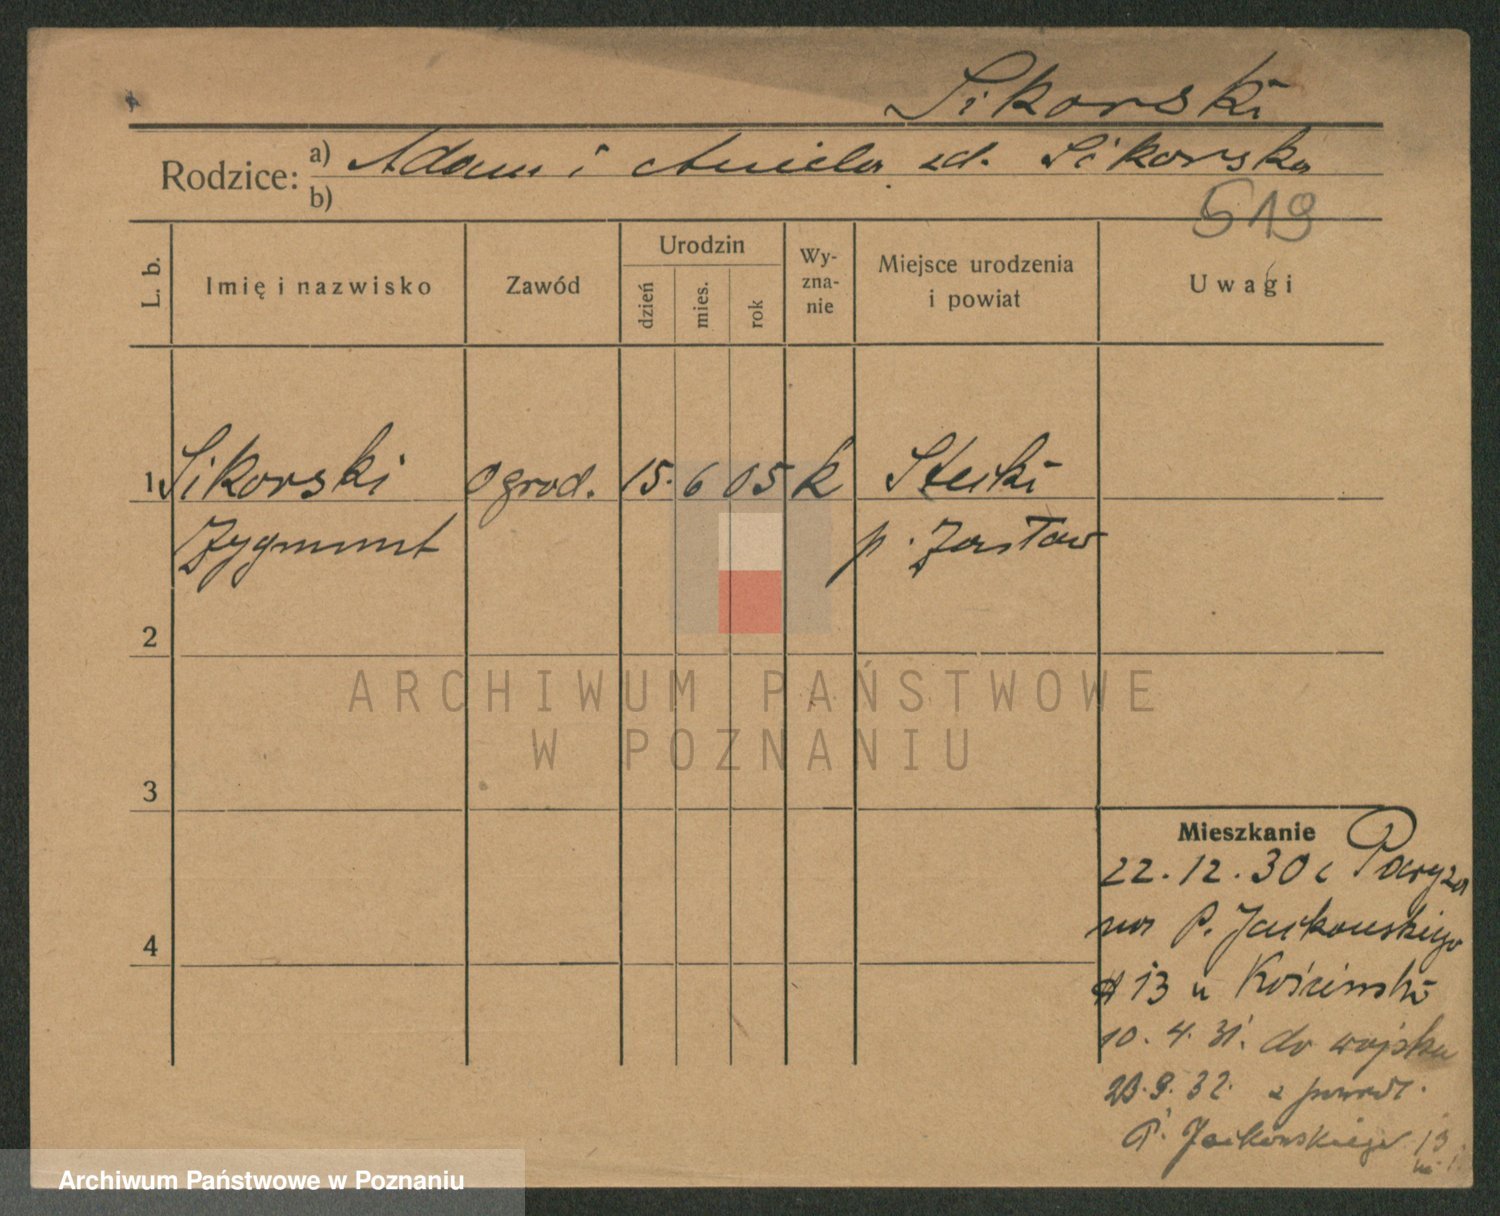 Sikorski
Rodzice: a) Adam i Aniela zd. Sikorska
b)
519
L. b. Imię i nazwisko Zawód Urodzin dzień mies. rok Wy-zna-nie Miejsce urodzenia i powiat Uwagi
1 Sikorski Ogrod. 15. 6 05 k Stecki
Zygmunt p. Zasław
2
ARCHIWUM PAŃSTWOWE
W POZNANIU
3
Mieszkanie
22.12.30 z Paryża
na P. Jackowskiego
13 u Kościński
10.4.31. do wojska
9.32. z powrot.
P. Jackowskiego 13
4
Archiwum Państwowe w Poznaniu